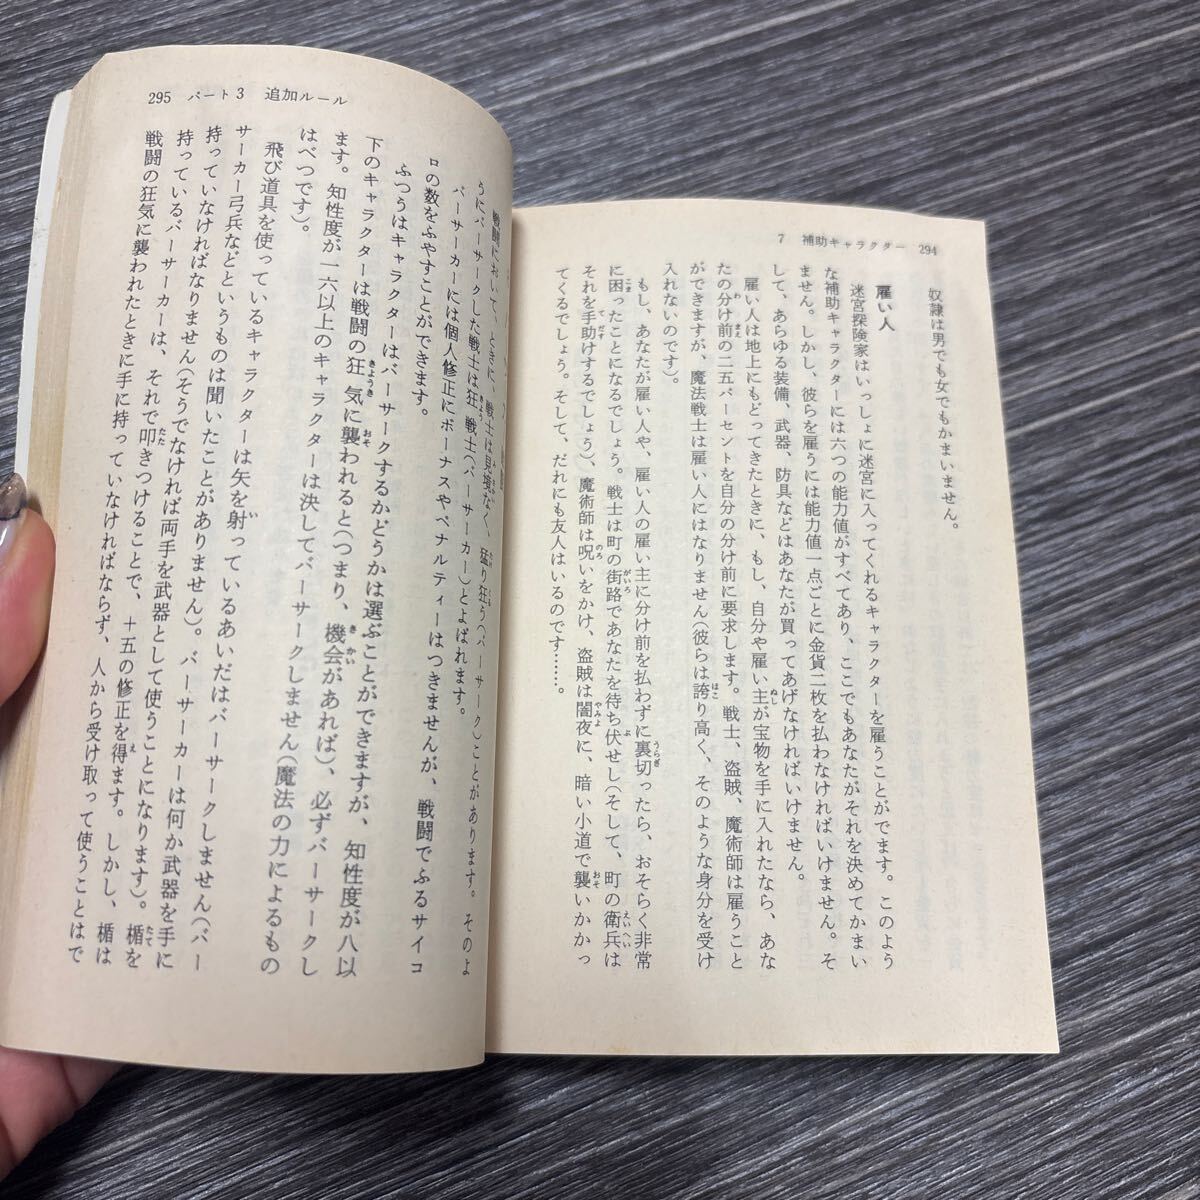 7 補助キャラクター 294
奴隷は男でも女でもかまいません。
雇い人
迷宮探険家はいっしょに迷宮に入ってくれるキャラクターを雇うことができます。このよう
な補助キャラクターには六つの能力値がすべてあり、ここでもあなたがそれを決めてかまい
ません。しかし、彼らを雇うには能力値一点ごとに金貨二枚を払わなければいけません。そ
して、あらゆる装備、武器、防具などはあなたが買ってあげなければいけません。
雇い人は地上にもどってきたときに、もし、自分や雇い主が宝物を手に入れたなら、あな
たの分け前の二五パーセントを自分の分け前に要求します。戦士、盗賊、魔術師は雇うこと
ができますが、魔法戦士は雇い人にはなりません(彼らは誇り高く、そのような身分を受け
入れないのです)。
もし、あなたが雇い人や、雇い人の雇い主に分け前を払わずに裏切ったら、おそらく非常
に困ったことになるでしょう。戦士は町の街路であなたを待ち伏せし(そして、町の衛兵は
それを手助けするでしょう)、魔術師は呪いをかけ、盗賊は闇夜に、暗い小道で襲いかかっ
てくるでしょう。そして、だれにも友人はいるのです……。
295 パート3 追加ルール
戦闘において、ときに、戦士は見境なく、猛り狂う(バーサーク)ことがあります。そのよ
うにバーサークした戦士は狂戦士(バーサーカー)とよばれます。
バーサーカーには個人修正にボーナスやペナルティーはつきませんが、戦闘でふるサイコ
ロの数をふやすことができます。
ふつうはキャラクターはバーサークするかどうかは選ぶことができますが、知性度が八以
下のキャラクターは戦闘の狂気に襲われると(つまり、機会があれば)、必ずバーサークし
ます。知性度が一六以上のキャラクターは決してバーサークしません(魔法の力によるもの
はべつです)。
飛び道具を使っているキャラクターは矢を射っているあいだはバーサークしません(バー
サーカー弓兵などというものは聞いたことがありません)。バーサーカーは何か武器を手に
持っていなければなりません(そうでなければ両手を武器として使うことになります)。楯を
持っているバーサーカーは、それで叩きつけることで、+五の修正を得ます。しかし、楯は
戦闘の狂気に襲われたときに手に持っていなければならず、人から受け取って使うことはで